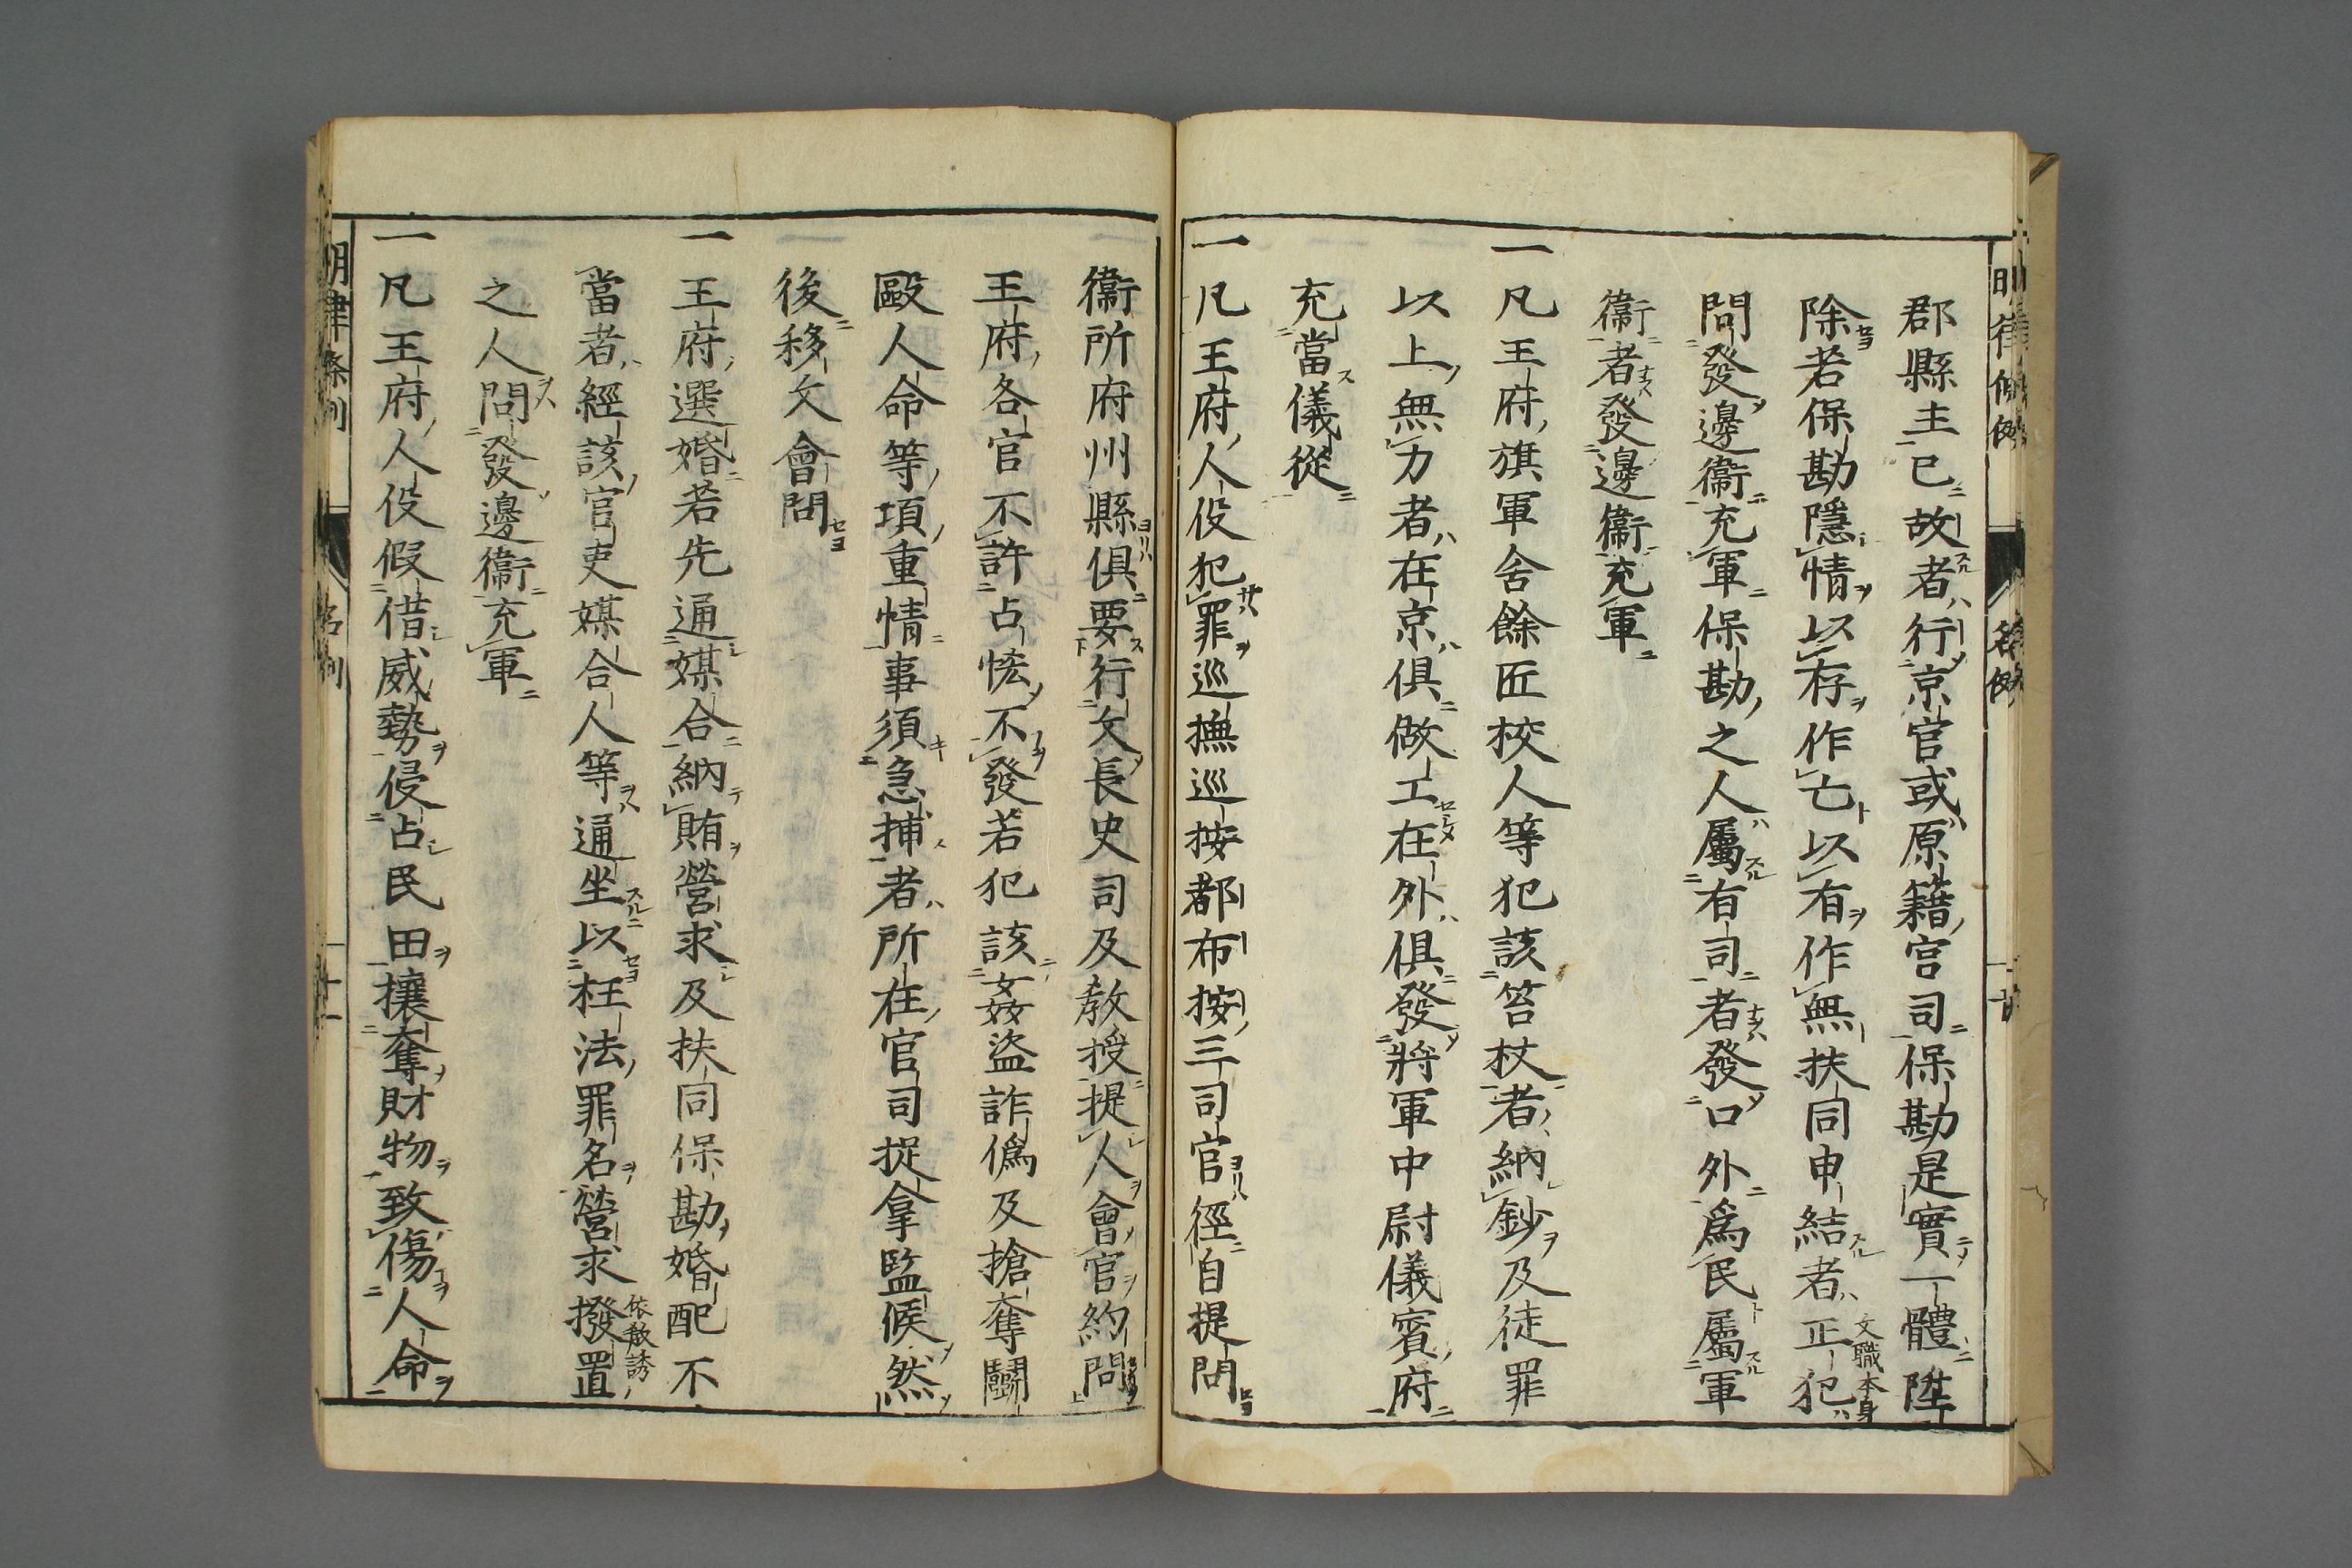 郡縣主已故者行京官或原籍官司保勘是實一體陞
除若保勘隱情以存作亡以有作無扶同申結者正犯
文職本身
問發邊衞充軍保勘之人屬有司者發口外爲民屬軍
衞者發邊衞充軍
一凡王府旗軍舍餘匠校人等犯該笞杖者納鈔及徒罪
以上無力者在京俱做工在外俱發將軍中尉儀賓府
充當儀從
一凡王府人役犯罪巡撫巡按都布按三司官徑自提問
衞所府州縣俱要行文長史司及敎授提人會官約問
王府各官不許占恡不發若犯該姦盜詐僞及搶奪鬪
毆人命等項重情事須急捕者所在官司捉拿監候然
後移文會問
一王府選婚若先通媒合納賄營求及扶同保勘婚配不
當者經該官吏媒合人等通坐以枉法罪名營求撥置
依敎誘
之人問發邊衞充軍
一凡王府人役假借威勢侵占民田攘奪財物致傷人命
明律條例
名例
十一